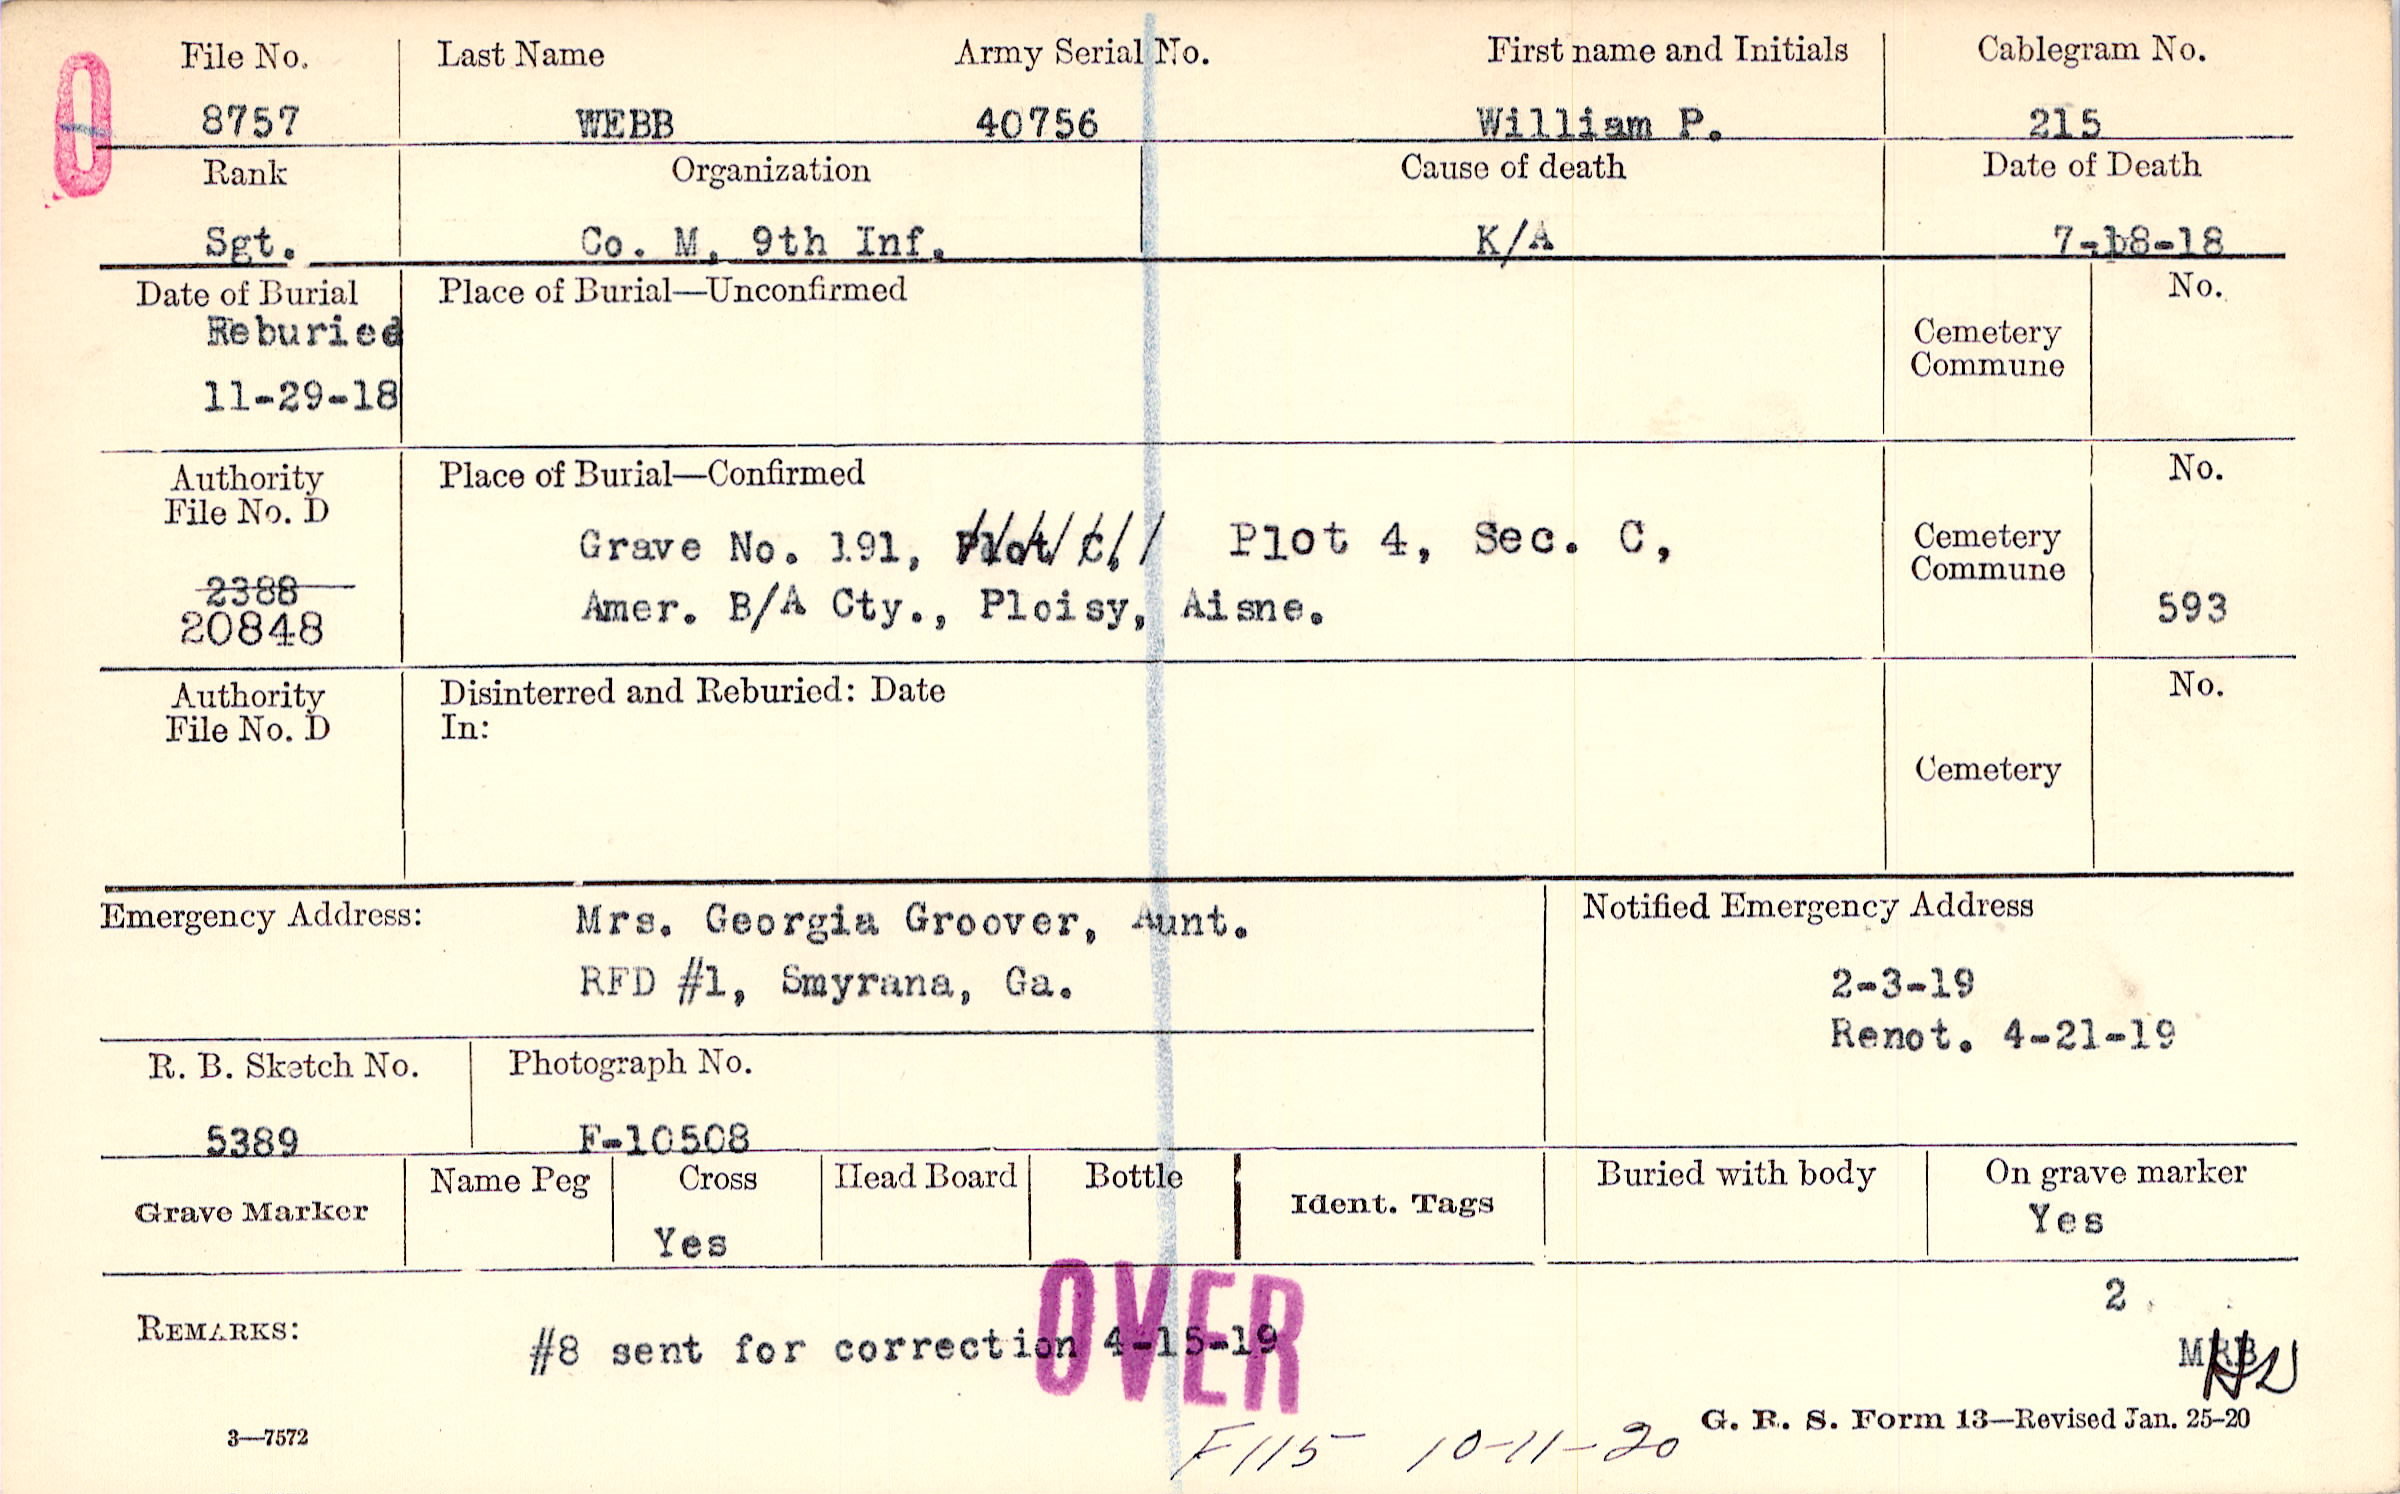 File No. Last Name Army Serial No. First name and Initials Cablegram No.
8757 WEBB 40756 William P. 215
Rank Organization Cause of death Date of Death
Sgt. Co. M, 9th Inf. K/A 7-18-18
Date of Burial Place of Burial—Unconfirmed No.
Reburied
Cemetery
Commune
11-29-18
Authority Place of Burial—Confirmed No.
File No. D
Grave No. 191, Plot C, Plot 4, Sec. C,
Cemetery
Commune
2388
20848 Amer. B/A Cty., Ploisy, Aisne. 593
Authority Disinterred and Reburied: Date No.
File No. D In:
Cemetery
Emergency Address: Mrs. Georgia Groover, Aunt. Notified Emergency Address
RFD #1, Smyrana, Ga. 2-3-19
Renot. 4-21-19
R. B. Sketch No. Photograph No.
5389 F-10508
Grave Marker Name Peg Cross Head Board Bottle Ident. Tags Buried with body On grave marker
Yes Yes
2
OVER
REMARKS: #8 sent for correction 4-15-19 MRB
3—7572 G. R. S. Form 13—Revised Jan. 25-20
F115 10-11-20